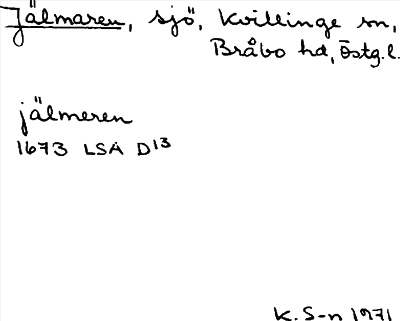 Jälmaren, sjö, Kvillinge sn,
Bråbo hd, Östg.l.
jälmeren
1673 LSA D13
K. S-n 1971